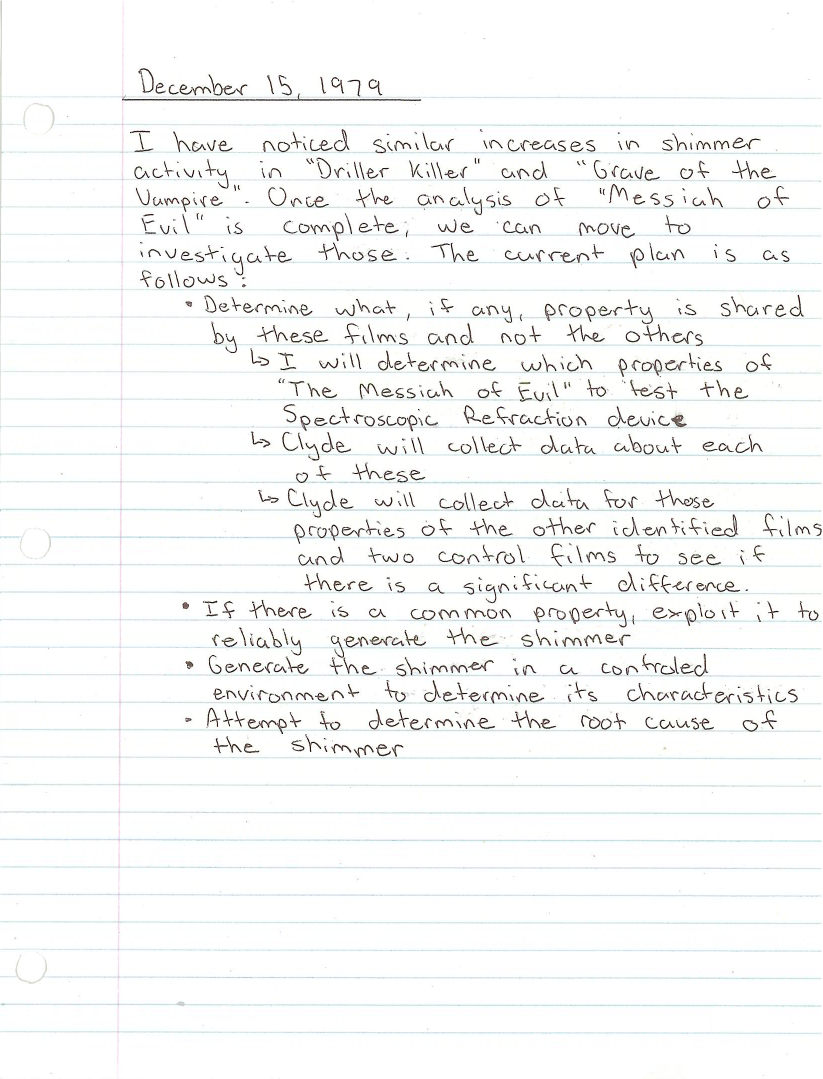 December 15, 1979
I have noticed similar increases in shimmer
activity in "Driller Killer" and "Grave of the
Vampire". Once the analysis of "Messiah of
Evil" is complete, we can move to
investigate those. The current plan is as
follows:
• Determine what, if any, property is shared
by these films and not the others
↳ I will determine which properties of
"The Messiah of Evil" to test the
Spectroscopic Refraction device
↳ Clyde will collect data about each
of these
↳ Clyde will collect data for those
properties of the other identified films
and two control films to see if
there is a significant difference.
• If there is a common property, exploit it to
reliably generate the shimmer
• Generate the shimmer in a controled
environment to determine its characteristics
• Attempt to determine the root cause of
the shimmer